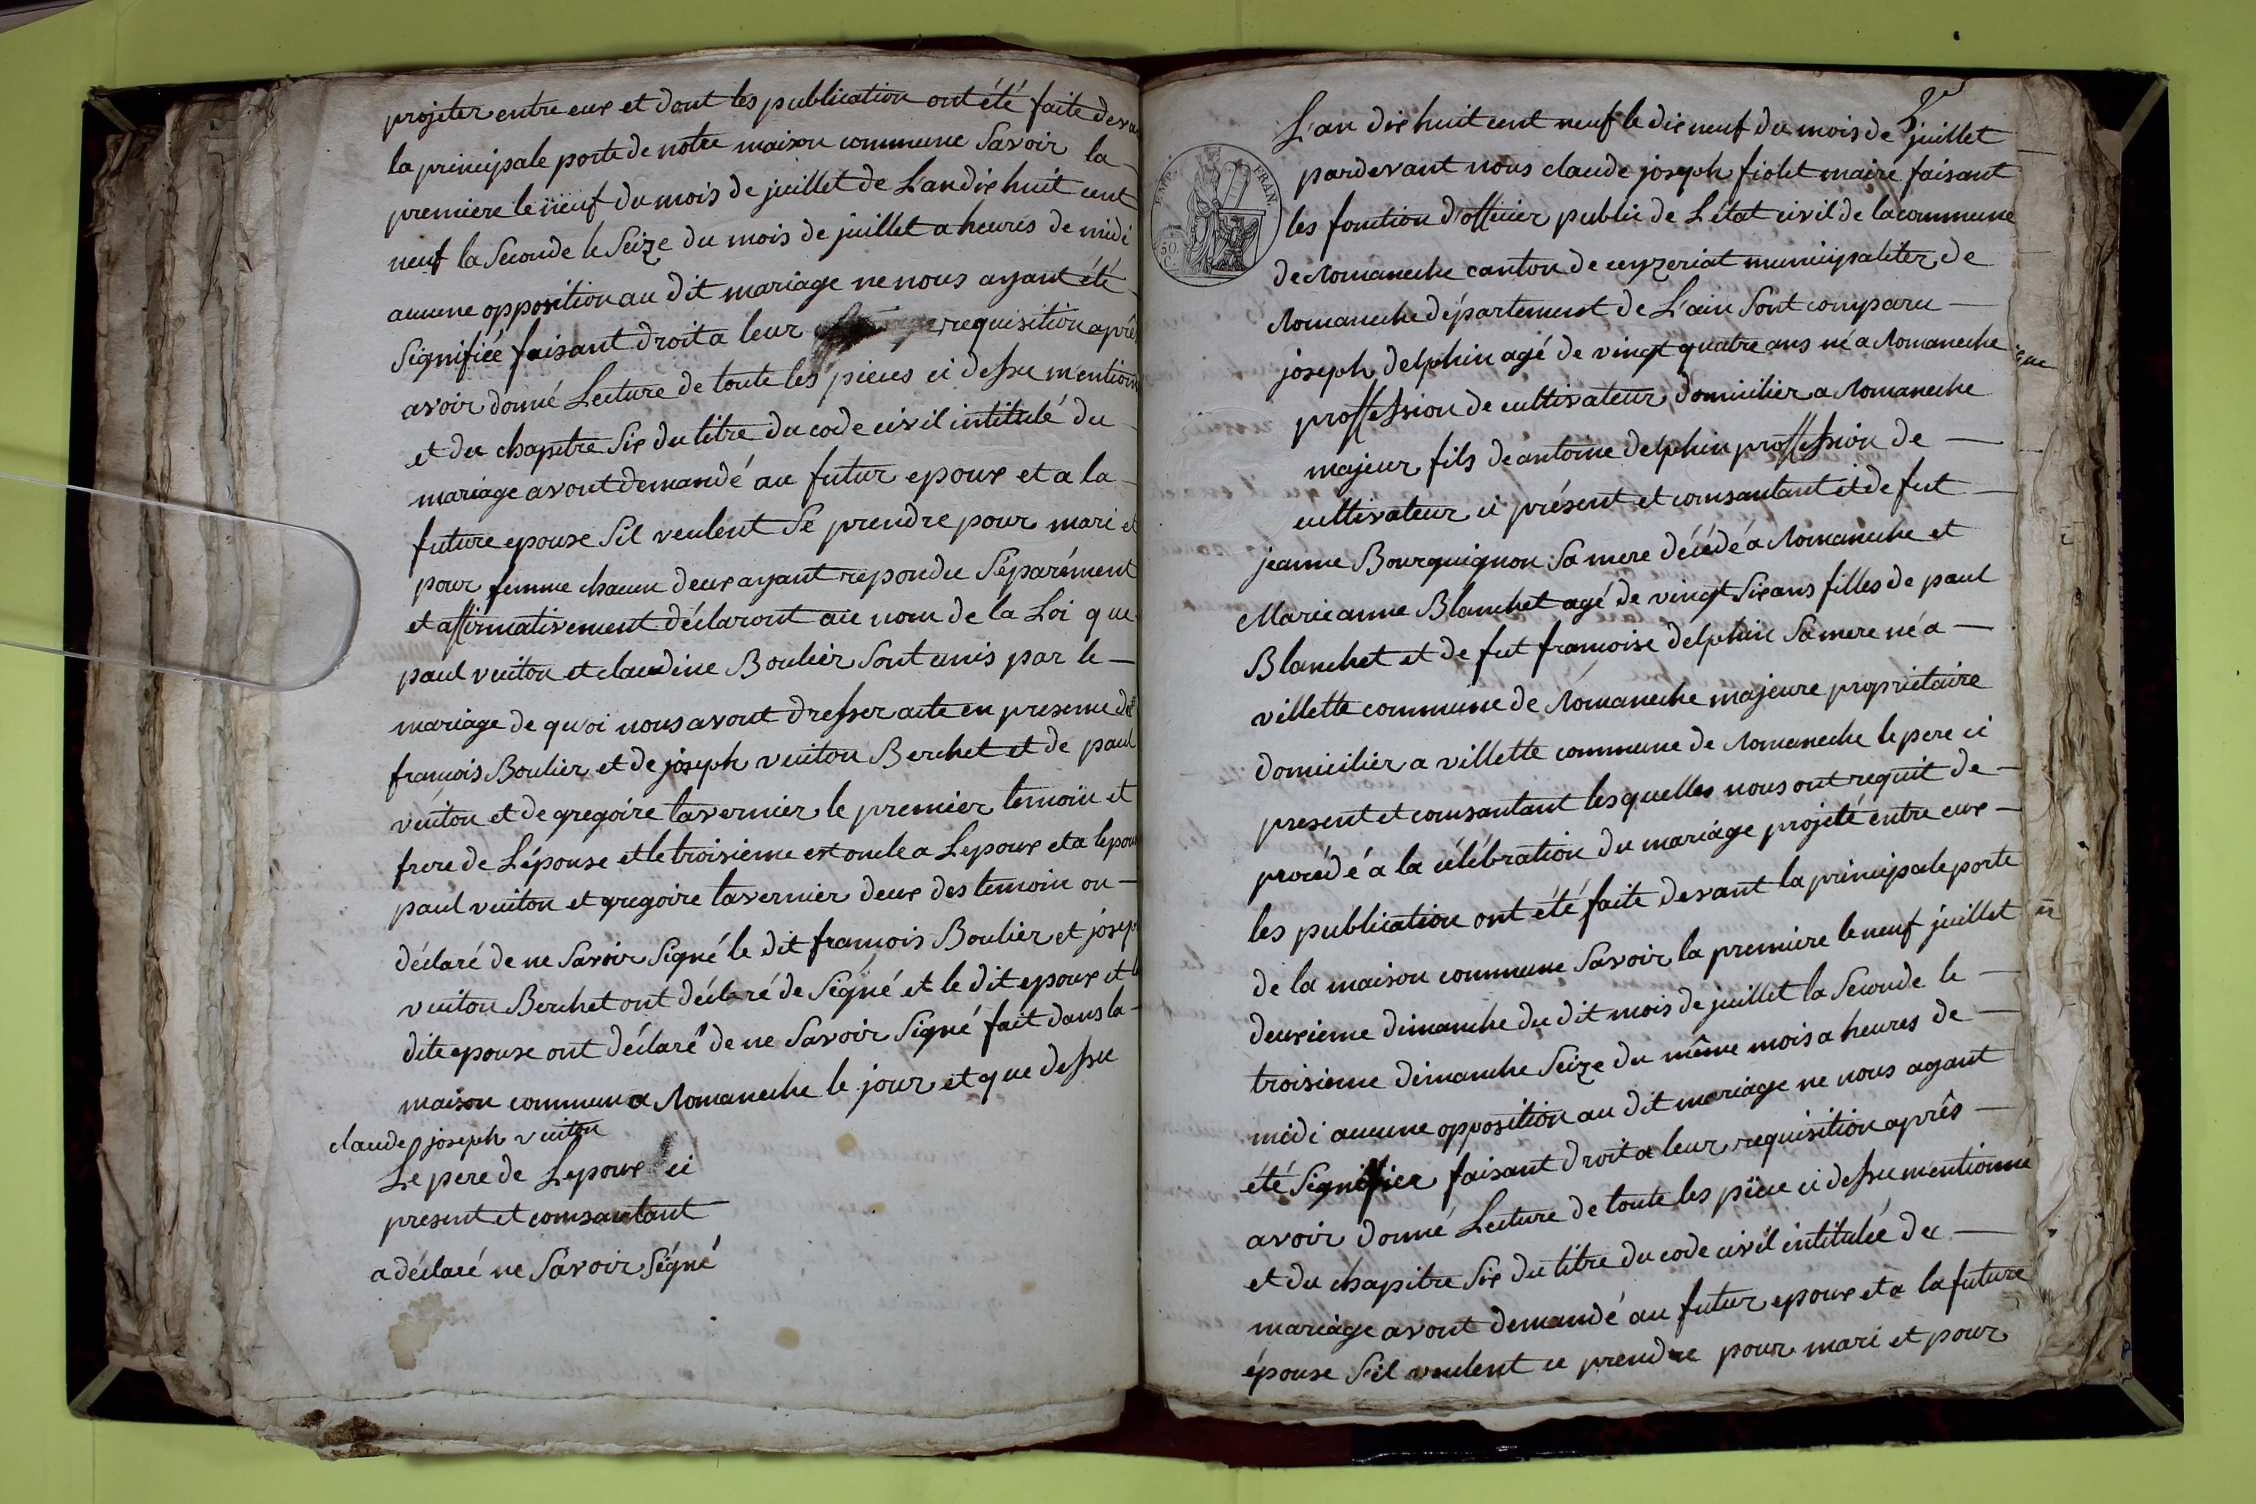 projeter entre eux et dont les publication ont été faite devan
la principale porte de notre maison commune Savoir la
premiere le neuf du mois de juillet de L'an dix huit cent
neuf la Seconde le Seize du mois de juillet a heures de midi
aucune opposition au dit mariage ne nous ayant été
Signifiée faisant droit a leur requisition après
avoir donné Lecture de toute les pieces ci dessu mentionn
et du chapitre Six du titre du code civil intitulé du
mariage avont demandé au futur epoux et a la
future epouse Sil veulent Se prendre pour mari et
pour femme chacun deux ayant repondu Séparément
et affirmativement déclaront au nom de la Loi que
paul vuiton et claudine Boulier Sont unis par le
mariage de quoi nous avont dresser acte en presence de
françois Boulier et de joseph vuiton Berchet et de paul
vuiton et de gregoire tavernier le premier temoin et
frere de L'épouse et le troisieme est oncle a Lepoux et a lepoux
paul vuiton et gregoire tavernier deux des temoin on
déclaré de ne Savoir Signé le dit françois Boulier et josep
vuiton Berchet ont déclaré de Signé et le dit epoux et
dite epouse ont déclaré de ne Savoir Signé fait dans la
maison commun a Romaneche le jour et que dessu
claude joseph vuiton
Le pere de Lepoux ci
present et comsantant
a déclaré ne Savoir Signé
L'an dix huit cent neuf le dix neuf du mois de juillet
pardevant nous claude joseph fiolet maire faisant
EMP. FRAN.
50
les fontion d'officier public de L'état civil de la commune
de Romaneche canton de ceyzeriat municipaliter de
Romaneche département de L'ain Sont comparu
joseph delphin agé de vingt quatre ans né a Romaneche
proffession de cultivateur domicilier a Romaneche
majeur fils de antoine delphin proffession de
cultivateur ci présent et comsantant et de fut
jeanne Bourguignon Sa mere décédé a Romaneche et
Marie anne Blanchet agé de vingt Six ans filles de paul
Blanchet et de fut françoise delphin Sa mere né a
villette commune de Romaneche majeure proprietaire
domicilier a villette commune de Romaneche le pere ci
present et comsantant lesquelles nous ont requit de
procédé a la célébration du mariage projeté entre eux
les publication ont été faite devant la principale porte
de la maison commune Savoir la premiere le neuf juillet
deuxieme dimanche du dit mois de juillet la Seconde le
troisieme dimanche Seize du même mois a heures de
midi aucune opposition au dit mariage ne nous ayant
été Signifier faisant droit a leur requisition après
avoir donné Lecture de toute les piece ci dessu mentionné
et du chapitre Six du titre du code civil intitulée du
mariage avont demandé au futur epoux et a la future
épouse Sil veulent ce prendre pour mari et pour